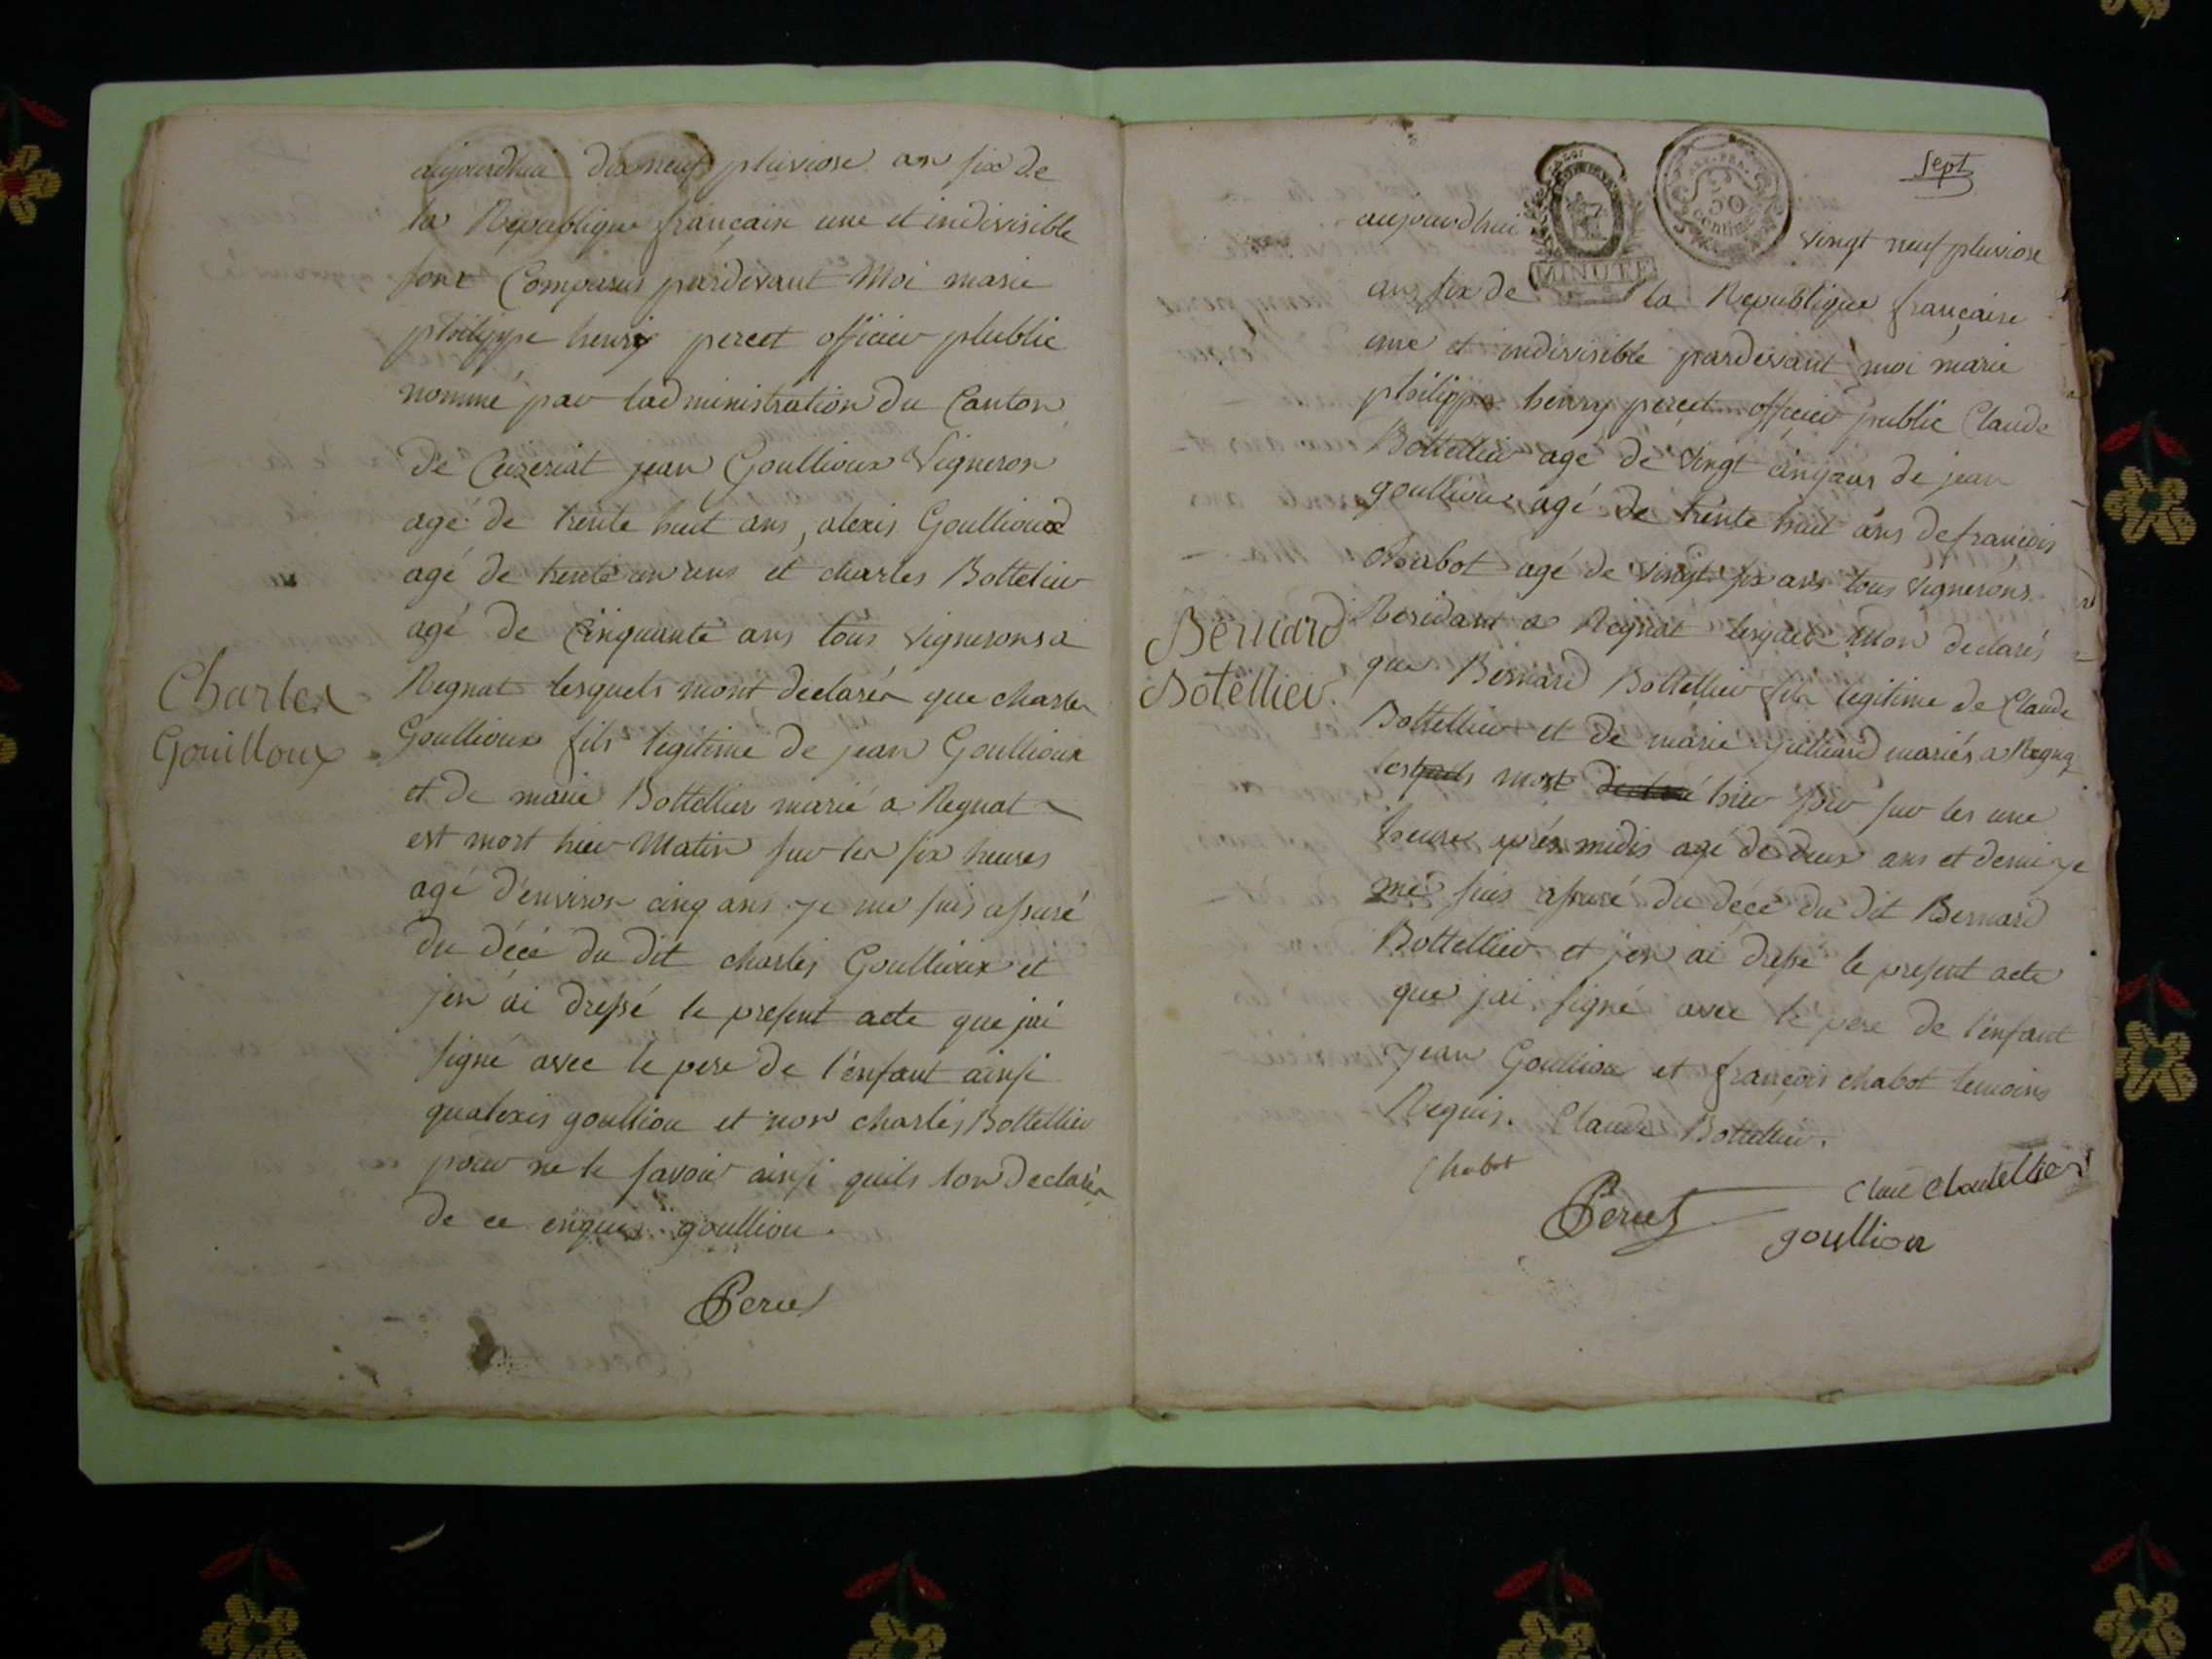 aujourdhui dix neuf pluviose an six de
la Republique française une et indivisible
sont Comparus pardevant Moi marie
philippe henry percet officier plublic
nommé par ladministration du Canton
de Cuzeriat jean Goullioux Vigneron
agé de trente huit ans, alexis Goullioud
agé de trente un ans et charles Bottelier
agé de Cinquante ans tous vignerons a
Regnat lesquels mont declarés que charles
Goullioux fils legitime de jean Goullioux
et de marie Bottellier marié a Regnat
est mort hier Matin sur les six heures
agé d'environ cinq ans je me suis assuré
du décé du dit charles Goullioux et
jen ai dressé le present acte que jai
signé avec le pere de l'enfant ainsi
qualexis goulliou et non charles Bottellier
pour ne le savoir ainsi quils lon declarés
de ce enquis goulliou
Percet
Charles
Gouilloux
Sept
MINUTE
50
Centimes
aujourdhui vingt neuf pluviose
an six de la Republique française
une et indivisible pardevant moi marie
philippe henry percet officier public Claude
Bottellier agé de vingt cinq ans de jean
goulliou agé de trente huit ans de francois
Chabot agé de vingt six ans tous vignerons
Residant a Regnat lesquels mon declarés
que Bernard Bottellier fils legitime de Claude
Bottellier et de marie juilliard mariés a Regnat
lesquels mort declaré hier soir sur les une
heure après midis agé de deux ans et demi je
me suis assuré du décé du dit Bernard
Bottellier et jen ai dressé le present acte
que jai signé avec le pere de l'enfant
jean Goulliou et françois chabot temoins
Requis. Claude Bottellier.
Chabot
Percet
goulliou
Bernard
Botellier.